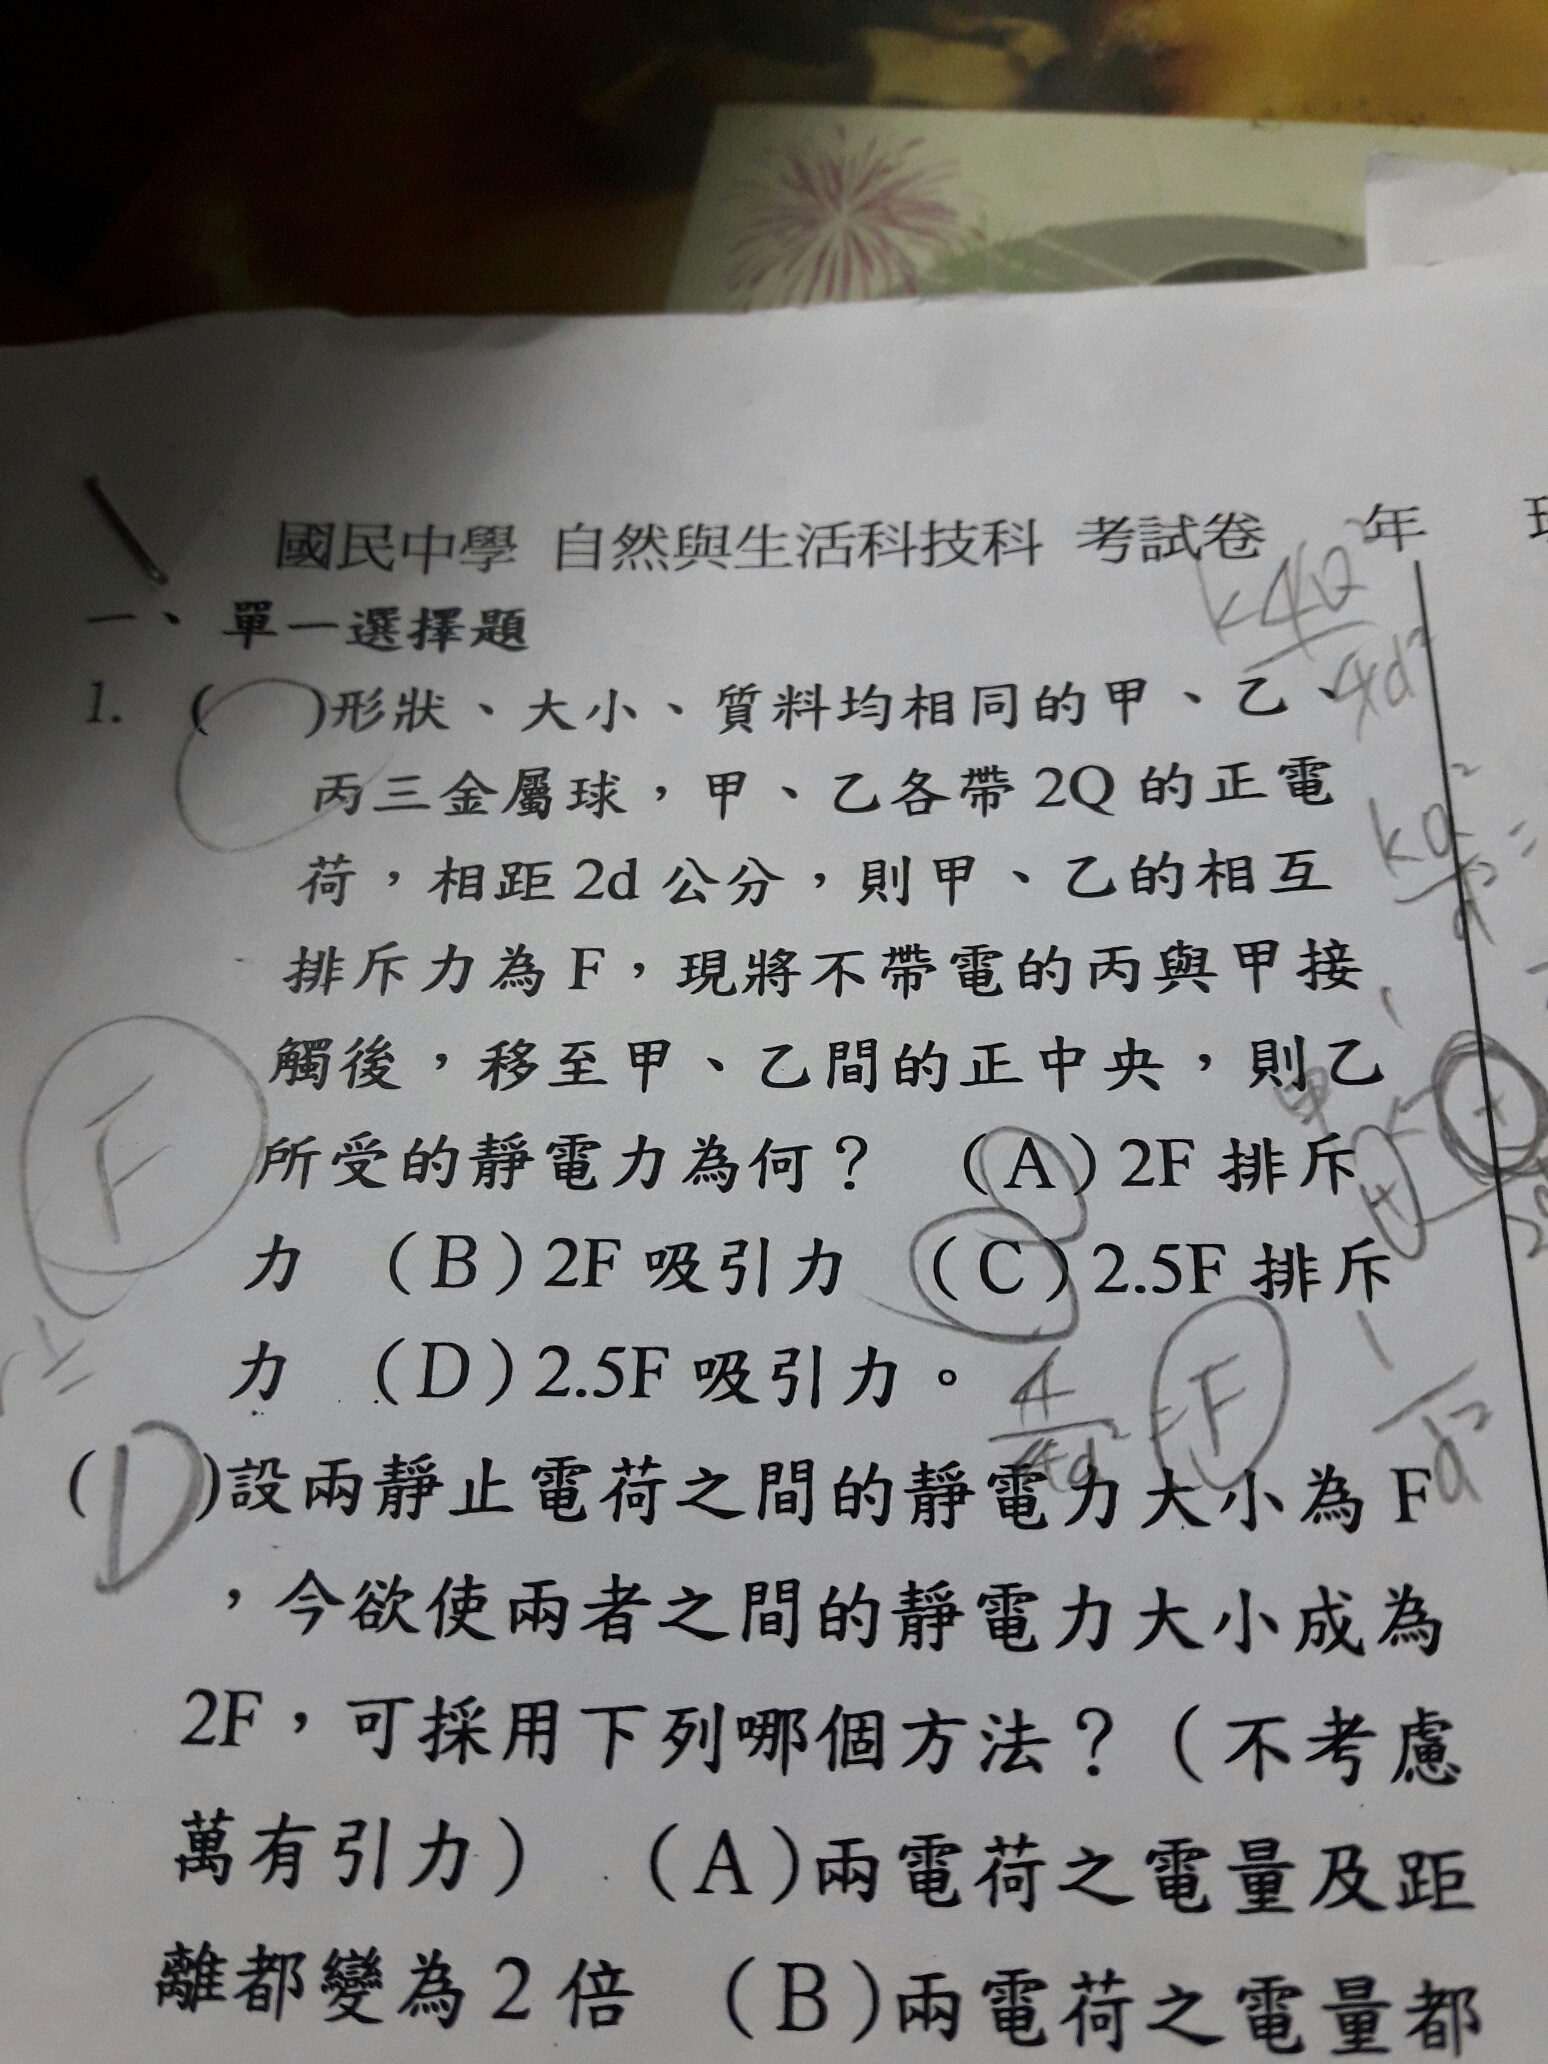 國民中學 自然與生活科技科 考試卷 年
K4Q
4d²
一、單一選擇題
1. ( )形狀、大小、質料均相同的甲、乙、
丙三金屬球，甲、乙各帶 2Q 的正電
荷，相距 2d 公分，則甲、乙的相互
KQ²
d² =
排斥力為 F，現將不帶電的丙與甲接
觸後，移至甲、乙間的正中央，則乙
甲
所受的靜電力為何？ （A）2F 排斥
F
力 （B）2F 吸引力 （C）2.5F 排斥
力 （D）2.5F 吸引力。
4
4d² = F
d²
(D)設兩靜止電荷之間的靜電力大小為 F
，今欲使兩者之間的靜電力大小成為
2F，可採用下列哪個方法？（不考慮
萬有引力） （A）兩電荷之電量及距
離都變為 2 倍 （B）兩電荷之電量都